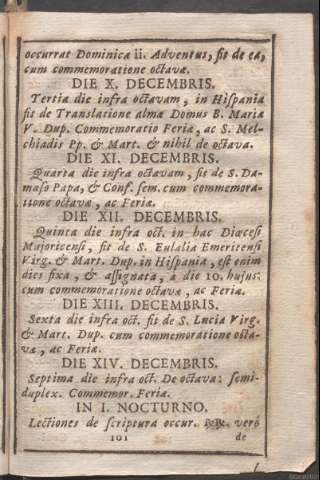 occurrat Dominica ii. Adventus, fit de ea,
cum commemoratione octavæ.
DIE X. DECEMBRIS.
Tertia die infra octavam, in Hispania
fit de Translatione almæ Domus B. Mariæ
V. Dup. Commemoratio Feriæ, ac S. Mel-
chiadis Pp. & Mart. & nihil de octava.
DIE XI. DECEMBRIS.
Quarta die infra octavam, fit de S. Da-
maso Papa, & Conf. sem. cum commemora-
tione octavæ, ac Feriæ.
DIE XII. DECEMBRIS.
Quinta die infra oct. in hac Diœcesi
Majoricensi, fit de S. Eulalia Emeritensi
Virg. & Mart. Dup. in Hispania, est enim
dies fixa, & assignata, à die 10. hujus:
cum commemoratione octavæ, ac Feriæ.
DIE XIII. DECEMBRIS.
Sexta die infra oct. fit de S. Lucia Virg.
& Mart. Dup. cum commemoratione octa-
væ, ac Feriæ.
DIE XIV. DECEMBRIS.
Septima die infra oct. De octava: semi-
duplex. Commemor. Feriæ.
IN I. NOCTURNO.
Lectiones de scriptura occur. RR. verò
101 de